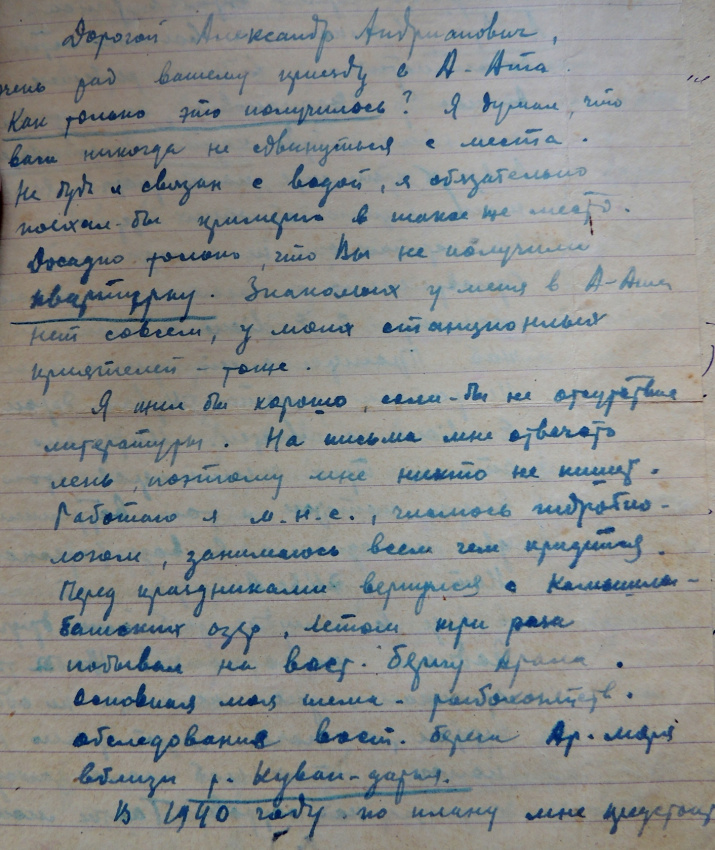 Дорогой Александр Андрианович,
очень рад вашему приезду в А-Ата.
Как только это получилось? Я думал, что
вам никогда не сдвинуться с места.
Не будь я связан с водой, я обязательно
поехал-бы примерно в такое же место.
Досадно только, что Вы не получили
квартирку. Знакомых у меня в А-Ата
нет совсем, у моих станционных
приятелей - тоже.
Я жил бы хорошо, если-бы не отсутствие
литературы. На письма мне отвечать
лень, поэтому мне никто не пишет.
Работаю я м.н.с., числюсь гидробио-
логом, занимаюсь всем чем придется.
Перед праздниками вернулся с Камышлы-
башских озер, летом три раза
побывал на вост. берегу Арала.
Основная моя тема - рыбохозяйств.
обследование вост. берега Ар. моря
вблизи р. Куван-дарья.
В 1940 году по плану мне предстоит